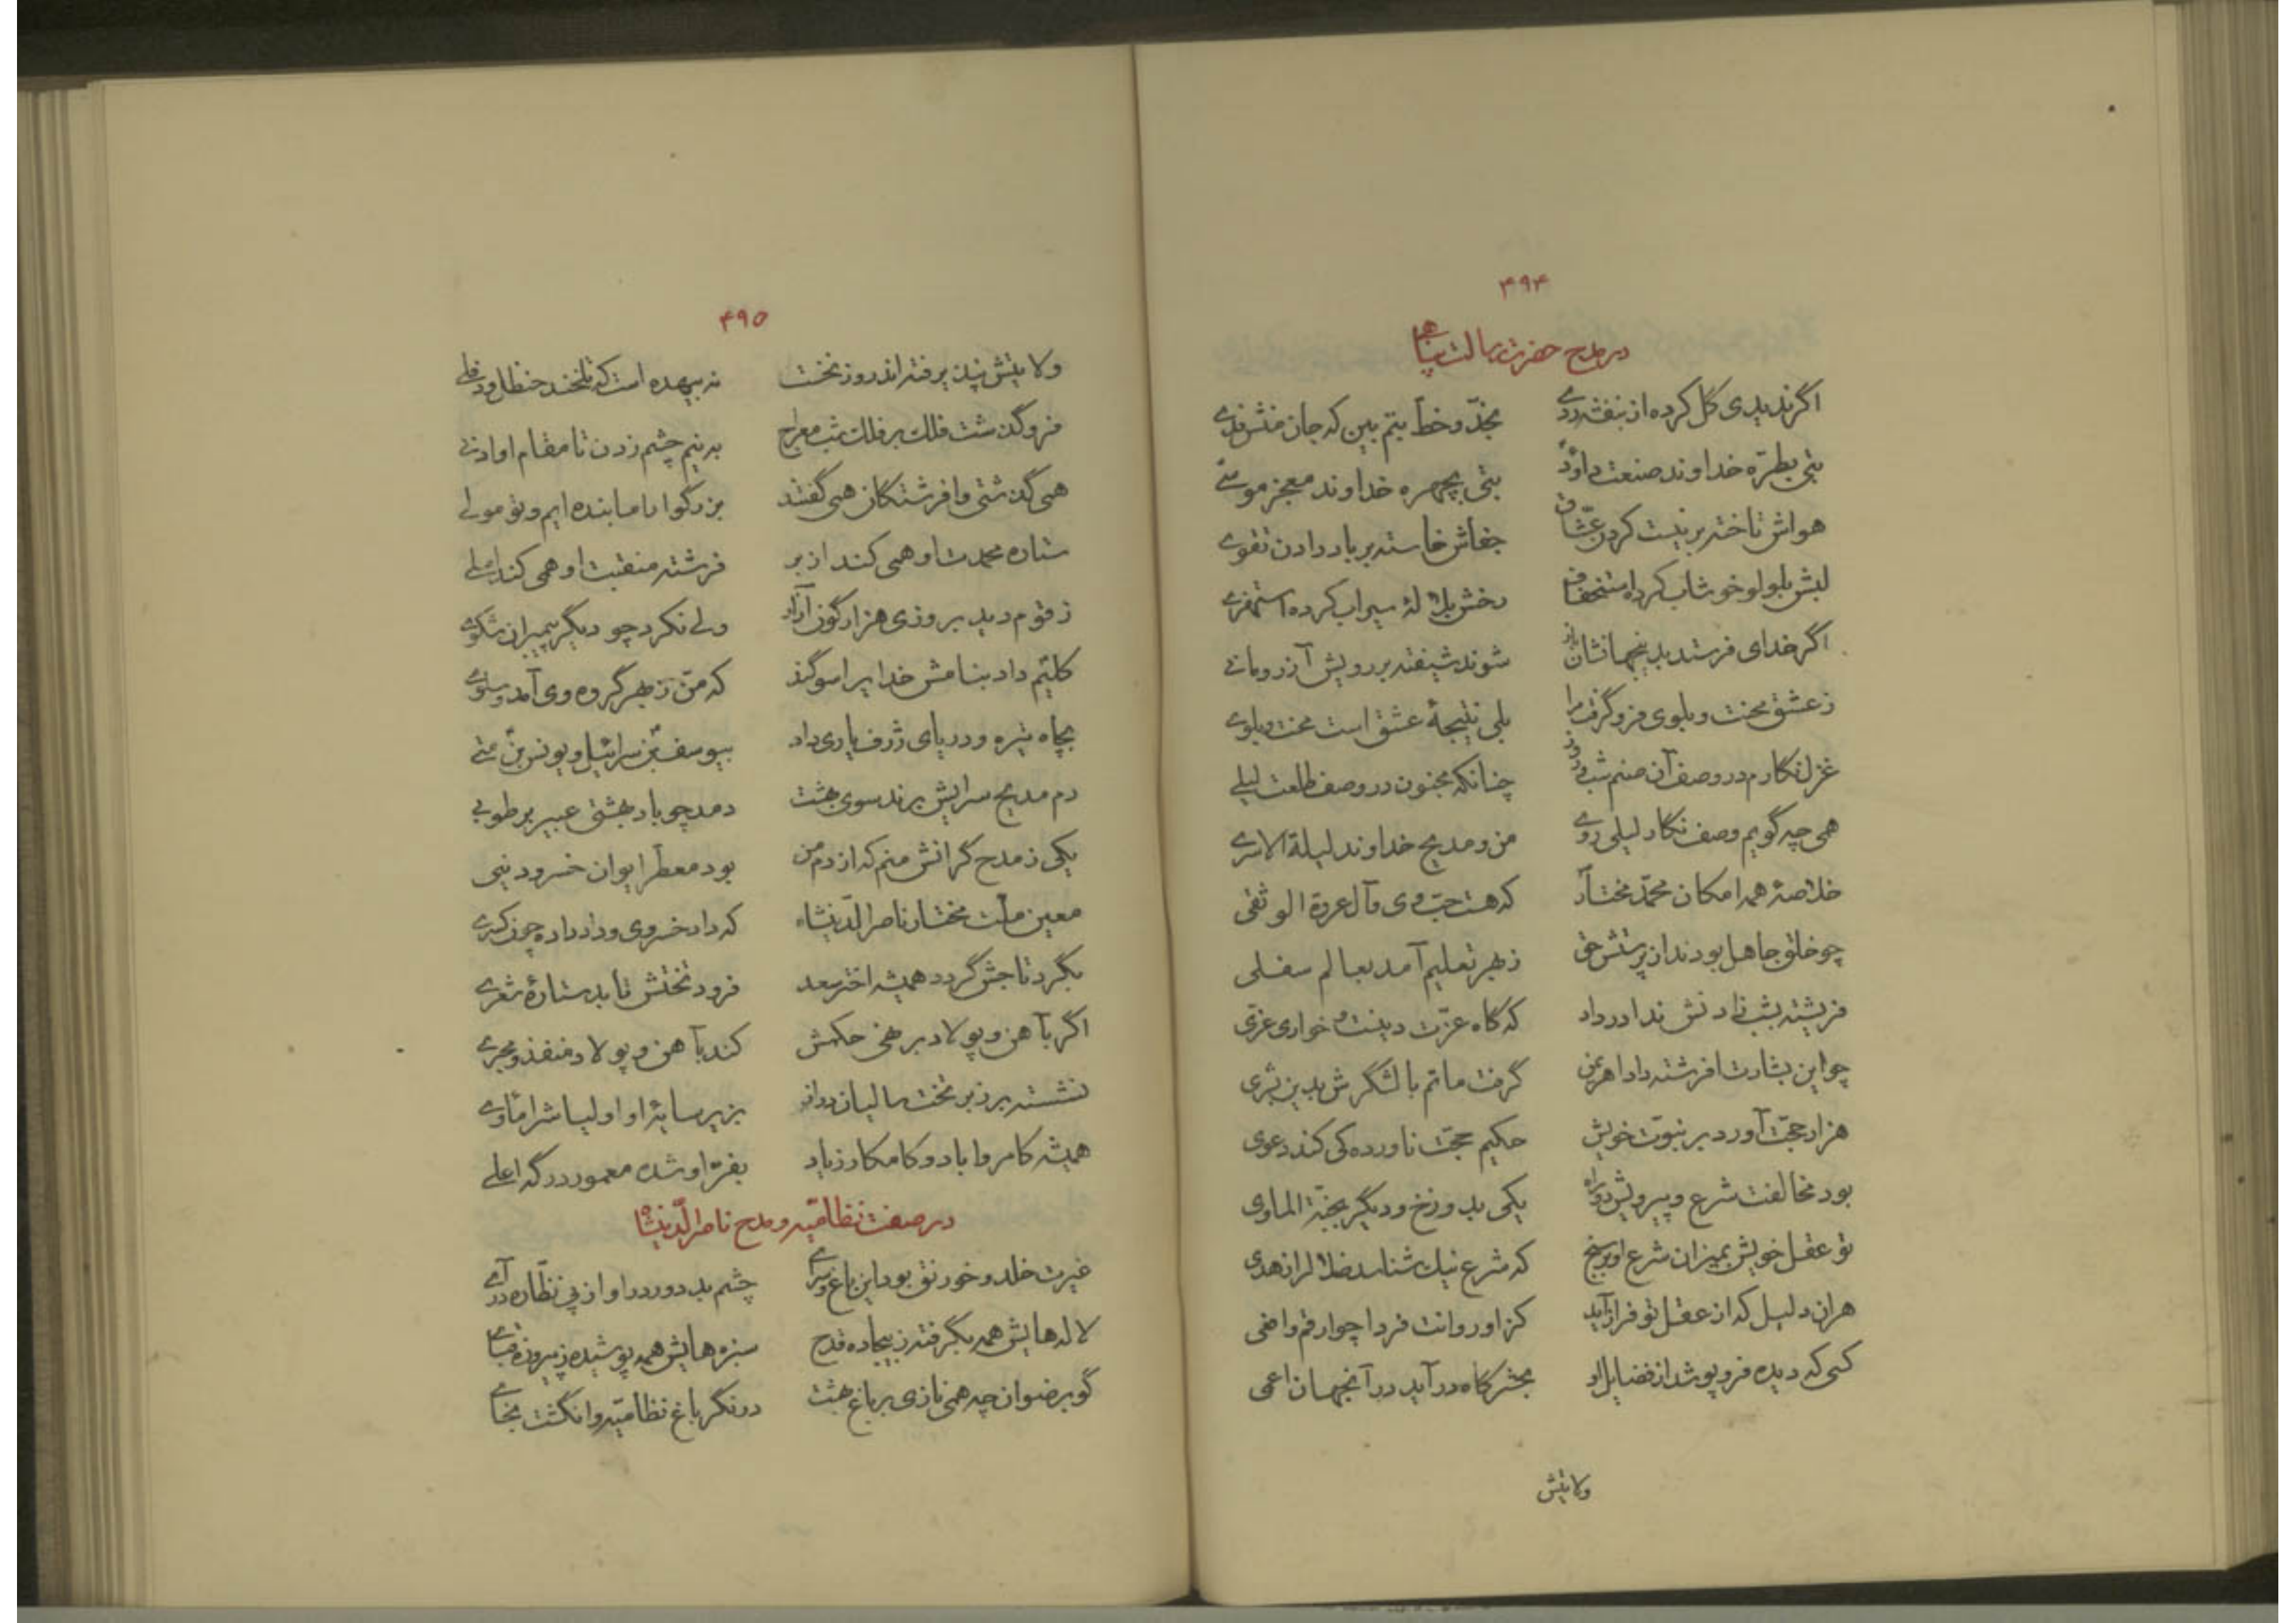 ۴۹۴
در مدح حضرت رسالت پناهی
اگر ندیدی گل کرده از بنفشه ردی بخدّ و خطّ بتم بین که جان منش فدی
بتی بطرّه خداوند صنعت داودؑ بتی بچهره خداوند معجز موسی
هواش تاختن بر نیست کردن عشّاق جفاش خاسته بر باد دادن تقوی
لبش بلولو خوشاب کرده استخفاف رخش بلالهٔ سیراب کرده استهزی
اگر خدای فرستد بدینجهانشان باز شوند شیفته بر رویش آزر و مانی
ز عشق محنت و بلوی فرو گرفت مرا بلی نتیجهٔ عشق است محنت و بلوی
غزل نگارم در وصف آن صنم شب و روز چنانکه مجنون در وصف طلعت لیلی
همی چه گویم وصف نگار لیلی روی من و مدیح خداوند لیلة الاسری
خلاصهٔ همه امکان محمّد مختار که هست حبّ وی و آل عروة الوثقی
چو خلق جاهل بودند از پرستش حق ز بهر تعلیم آمد بعالم سفلی
فریشته بشب زادنش ندا در داد که گاه عزّت دینست و خواری عزی
چو این بشارت افرشته داد اهریمن گرفت ماتم با لشگرش بدین بشری
هزار حجّت آورد بر نبوّت خویش حکیم حجّت ناورده کی کند دعوی
بود مخالفت شرع و پیرویش دو راه یکی بدوزخ و دیگر بجنّة الماوی
تو عقل خویش بمیزان شرع او بر سنج که شرع نیک شناسد ضلال را ز هدی
هران دلیل که از عقل تو فراز آید کز او روانت فردا چو ارقم و افعی
کسی که دیده فرو پوشد از فضایل او بحشرگاه در آید در آنجهان اعمی
ولایتش
۴۹۵
ولایتش نپذیرفته اند روز نخست نه بیهده است که تلخند حنظل و دفلی
فرو گذشت فلک بر فلک شب معراج به نیم چشم زدن تا مقام او ادنی
همی گذشتی و افرشتگان همی گفتند بزرگوارا ما بنده ایم و تو مولی
ستاره محمدت او همی کند از بر فرشته منقبت او همی کند املی
ز قوم دید بروزی هزار گون آزار ولی نکرد چو دیگر پیمبران شکوی
کلیم داد بنامش خدایرا سوگند که منّ ز بهر گروه وی آمد و سلوی
بچاه تیره و دریای ژرف یاری داد بیوسف بن سرائیل و یونس بن متی
دم مدیح سرایش برند سوی بهشت دمد چو باد بهشتی عبیر بر طوبی
یکی ز مدح گرانش منم که از دم من بود معطّر ایوان خسرو دنیی
معین ملّت مختار ناصرالدّینشاه که داد خسروی و داد داده چون کسری
بگرد تاجش گردد همیشه اختر سعد فرود تختش تابد ستارهٔ شعری
اگر بآهن و پولاد بر نهی حکمش کند بآهن و پولاد منفذ و مجری
نشسته برزبر تخت سالیان دراز بزیر سایهٔ او اولیاش را ماوی
همیشه کامروا باد و کامکار زیاد بفرّ او شده معمور درگه اعلی
در صفت نظامیّه و مدح ناصرالدّینشاه
غیرت خلد و خورنق بود این باغ و سرای چشم بد دور در او از پی نظّاره در آی
لاله هایش همه بگرفته ز بیجاده قدح سبزه هایش همه پوشیده ز پیروزه قبای
گو برضوان چه همی نازی بر باغ بهشت در نگر باغ نظامیّه و انگشت بخای